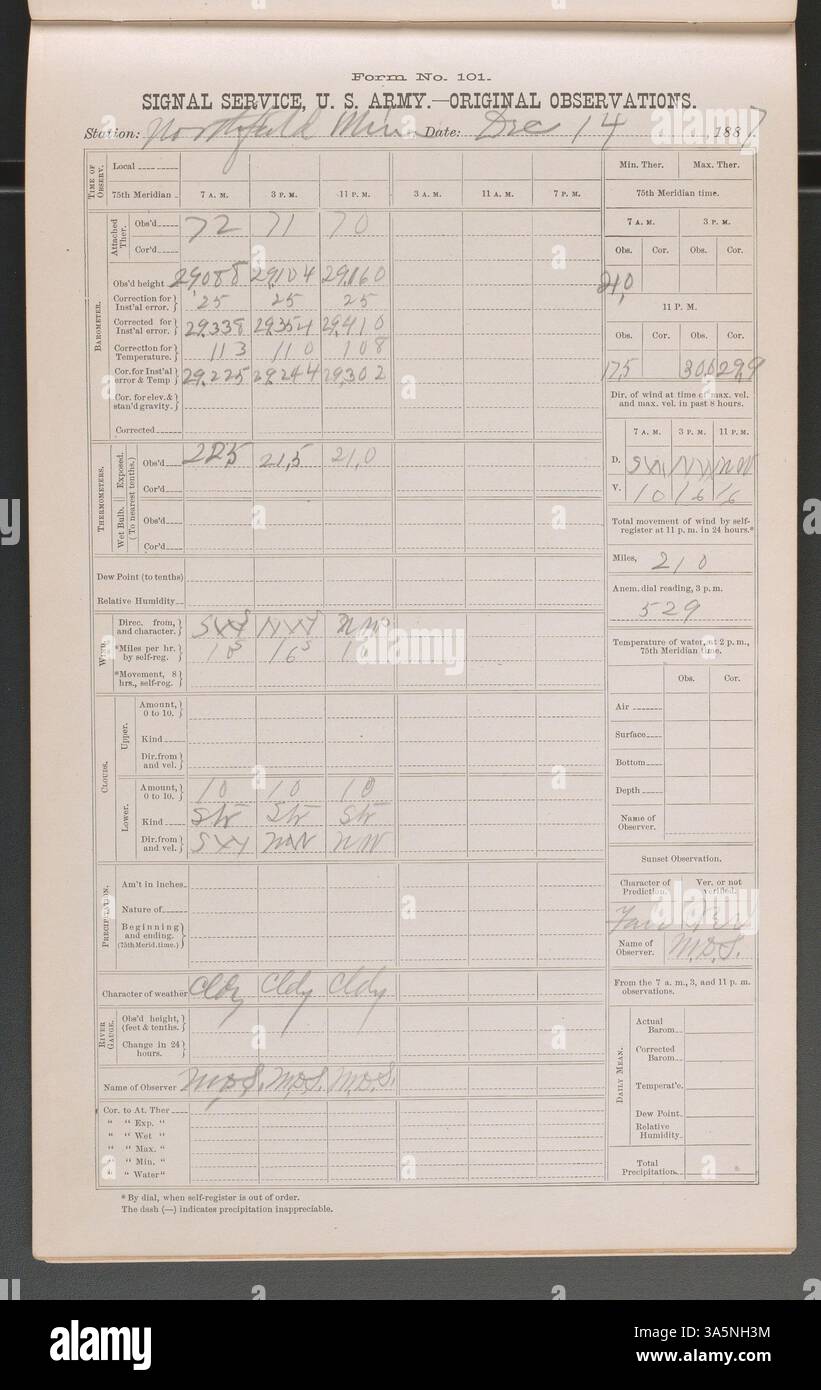 Form No. 101.
SIGNAL SERVICE, U. S. ARMY.—ORIGINAL OBSERVATIONS.
Station: Northfield Minn Date: Dec 14 1887.
TIME OF OBSERV.
Local
75th Meridian 7 A. M. 3 P. M. 11 P. M. 3 A. M. 11 A. M. 7 P. M.
BAROMETER.
Attached Ther.
Obs'd 72 71 70
Cor'd
Obs'd height 29.088 29.104 29.160
Correction for Inst'al error. 25 25 25
Corrected for Inst'al error. 29.338 29.354 29.410
Correction for Temperature. 113 110 108
Cor. for Inst'al error & Temp 29.225 29.244 29.302
Cor. for elev. & stan'd gravity.
Corrected
THERMOMETERS.
(To nearest tenths.)
Exposed.
Obs'd 22.5 21.5 21.0
Cor'd
Wet Bulb.
Obs'd
Cor'd
Dew Point (to tenths)
Relative Humidity
WIND.
Direc. from, and character. SW NW NW
*Miles per hr. by self-reg.
*Movement, 8 hrs., self-reg.
CLOUDS.
Upper.
Amount, 0 to 10.
Kind
Dir. from and vel.
Lower.
Amount, 0 to 10. 10 10 10
Kind Str Str Str
Dir. from and vel. SW NW NW
PRECIPITATION.
Am't in inches
Nature of
Beginning and ending. (75th Merid. time.)
Character of weather Cldy Cldy Cldy
RIVER GAUGE.
Obs'd height, (feet & tenths.)
Change in 24 hours.
Name of Observer M.D.S. M.D.S. M.D.S.
Cor. to At. Ther
" " Exp. "
" " Wet "
" " Max. "
" " Min. "
" " Water"
* By dial, when self-register is out of order.
The dash (—) indicates precipitation inappreciable.
Min. Ther. Max. Ther.
75th Meridian time.
7 A. M. 3 P. M.
Obs. Cor. Obs. Cor.
11 P. M.
Obs. Cor. Obs. Cor.
17.5 30.0 29.9
Dir. of wind at time of max. vel. and max. vel. in past 8 hours.
7 A. M. 3 P. M. 11 P. M.
D. SW NW NW
V. 10 16 16
Total movement of wind by self-register at 11 p. m. in 24 hours.*
Miles, 210
Anem. dial reading, 3 p. m.
529
Temperature of water, at 2 p. m., 75th Meridian time.
Obs. Cor.
Air
Surface
Bottom
Depth
Name of Observer.
Sunset Observation.
Character of Prediction. Ver. or not verified.
Fair Ver
Name of Observer. M.D.S.
From the 7 a. m., 3, and 11 p. m. observations.
DAILY MEAN.
Actual Barom
Corrected Barom
Temperat'e.
Dew Point
Relative Humidity
Total Precipitation
alamy
a
3A5NH3M